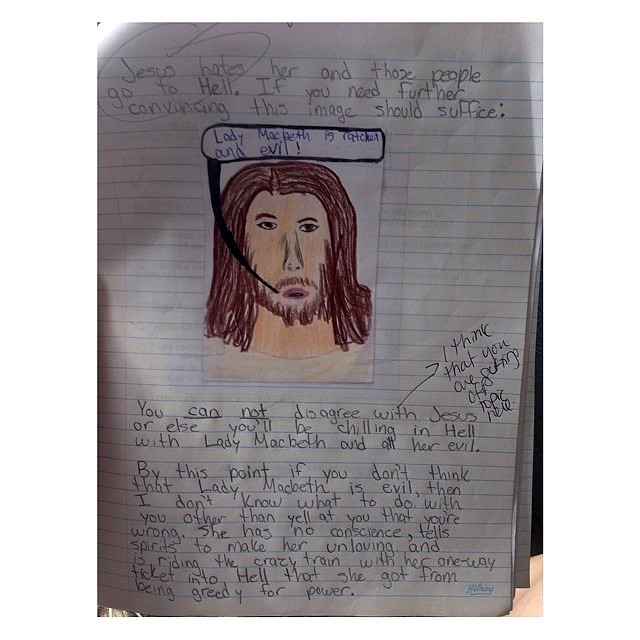 Jesus hates her and those people
go to Hell. If you need further
convincing this image should suffice:
Lady Macbeth is ratchet
and evil!
I think
that you
are getting
off
topic
here.
You can not disagree with Jesus
or else you'll be chilling in Hell
with Lady Macbeth and all her evil.
By this point if you don't think
that Lady Macbeth is evil, then
I don't know what to do with
you other than yell at you that you're
wrong. She has no conscience, tells
spirits to make her unloving and
is riding the crazy train with her one-way
ticket into Hell that she got from
being greedy for power.
Hilroy